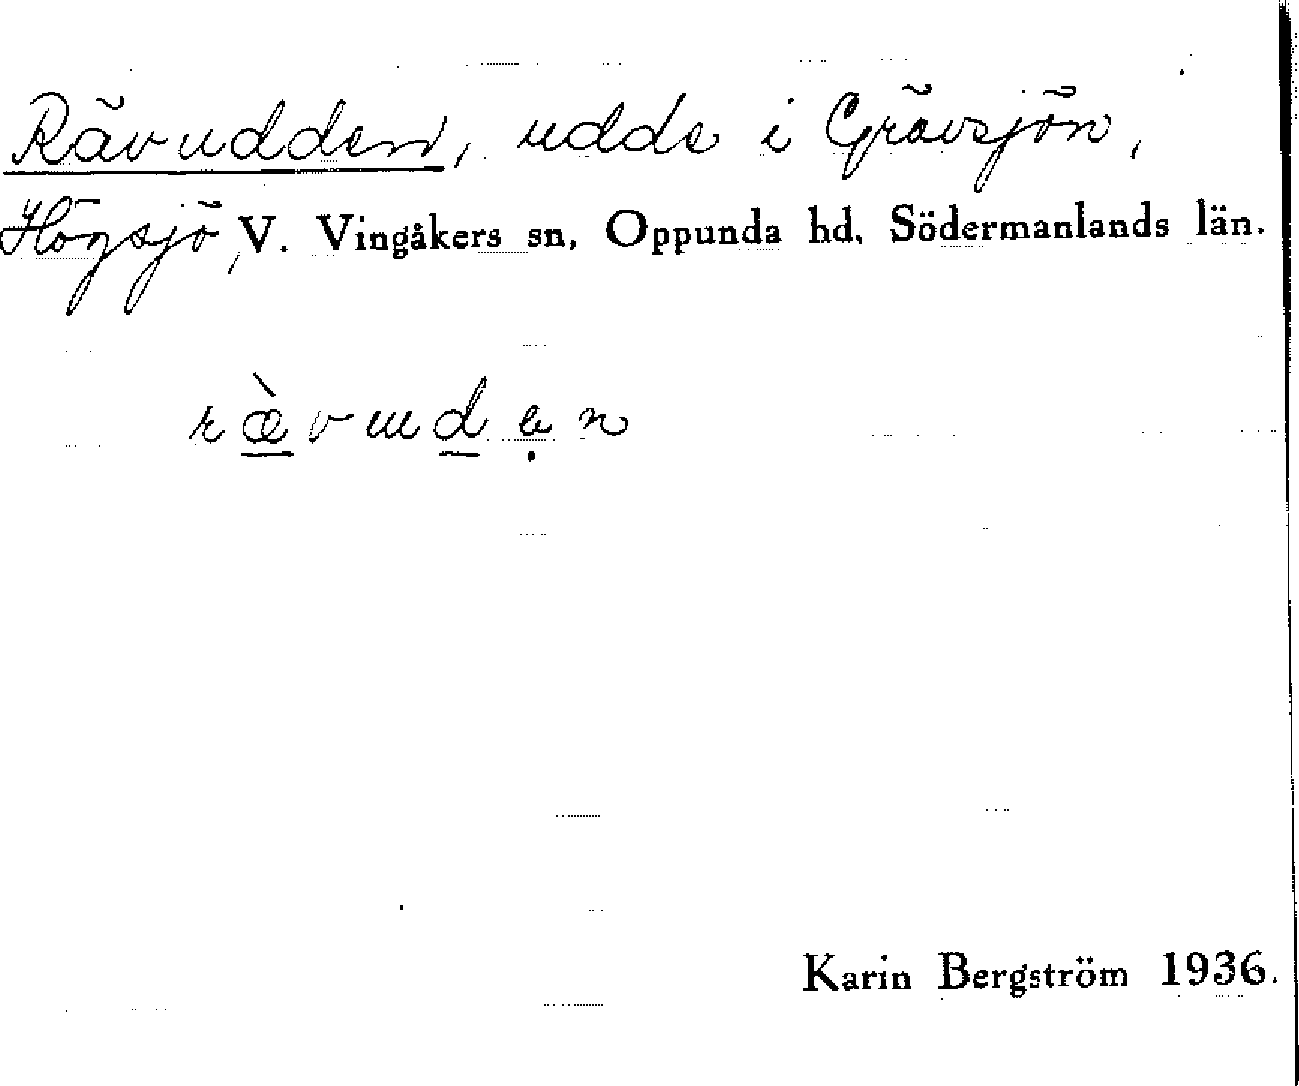 Rävudden, udde i Grävsjön,
Högsjö, V. Vingåkers sn, Oppunda hd, Södermanlands län.
ræ̀vuɯdẹn
Karin Bergström 1936.